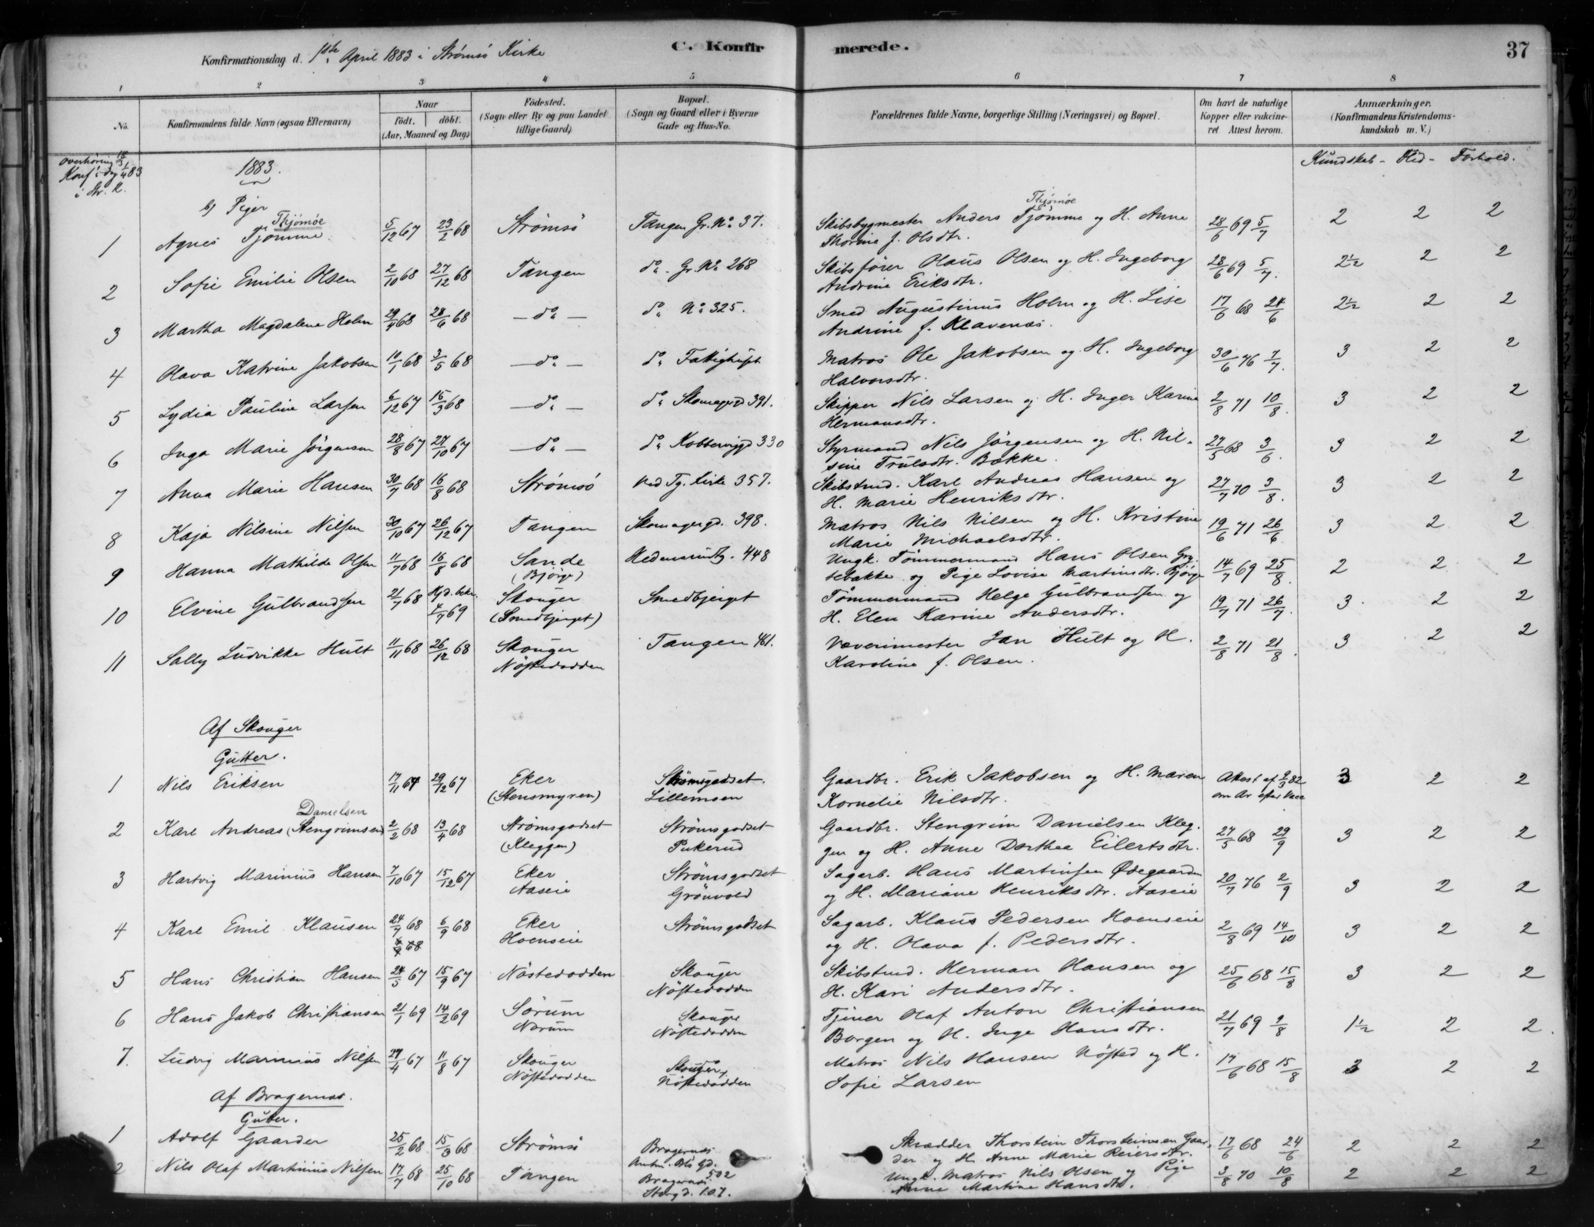 Konfirmationsdag d. 1ste April 1883 i Strømsø Kirke
C. Konfirmerede.
37
1 2 3 4 5 6 7 8
No. Konfirmandens fulde Navn (ogsaa Efternavn) Naar født. døbt. (Aar, Maaned og Dag) Fødested. (Sogn eller By og paa Landet tillige Gaard) Bopæl. (Sogn og Gaard eller i Byerne Gade og Hus-No. Forældrenes fulde Navne, borgerlige Stilling (Næringsvei) og Bopæl. Om havt de naturlige Kopper eller vakcineret Attest herom. Anmærkninger. (Konfirmandens Kristendomskundskab m. V.)
Kundskab - Flid - Forhold.
1883.
b) Piger
1 Agnes Tjømme Thjømøe 5/12 67 23/2 68 Strømsø Tangen Gr. No 37. Skibsbygmester Anders Tjømme Thjømøe og H. Anne Thorine f. Olsdtr. 28/6 69 5/7 2 2 2
2 Sofie Emilie Olsen 2/10 68 27/12 68 Tangen do. Gr. No 268 Skibsfører Olaus Olsen og H. Ingeborg Andrine Eriksdtr. 28/6 69 5/7 2½ 2 2
3 Martha Magdalene Holm 29/4 68 28/6 68 - do - do No 325. Smed Augustinus Holm og H. Lise Andrine f. Klavenæs. 17/6 68 24/6 2½ 2 2
4 Olava Katrine Jakobsen 11/1 68 3/5 68 - do - do Fattighuset Matros Ole Jakobsen og H. Ingeborg Halvorsdtr. 30/6 76 7/7. 3 2 2
5 Lydia Pauline Larsen 6/12 67 15/3 68 - do - do Skomagergd 391. Skipper Nils Larsen og H. Inger Karine Hermansdtr. 2/8 71 10/8. 3 2 2
6 Inga Marie Jørgensen 28/8 67 27/10 67 - do - do Kobbervigd 330 Styrmand Nils Jørgensen og H. Nilsine Trulsdtr. Bække. 27/5 68 3/6. 3 2 2
7 Anna Marie Hansen 30/7 68 16/8 68 Strømsø Ved Tg. Kirke 357. Skibstmd. Karl Andreas Hansen og H. Marie Henriksdtr. 27/7 70 3/8. 3 2 2
8 Kaja Nilsine Nilsen 30/10 67 26/12 67 Tangen Skomagergd. 398. Matros Nils Nilsen og H. Kristine Marie Michaelsdtr. 19/6 71 26/6 3 2 2
9 Hanna Mathilde Olsen 11/7 68 16/8 68 Sande (Bjørge) 448 Ungk. Tømmermand Hans Olsen og Pige Lovise Martinsdtr. Bjørge 14/7 69 25/8. 2 2 2
10 Elvine Gulbrandsen 21/7 68 69 Skouger (Smedbjerget) Smedbjerget Tømmermand Helge Gulbrandsen og H. Elen Karine Andersdtr. 19/7 71 26/7 3. 2 2
11 Sally Ludvikke Hult 11/11 68 26/12 68 Skouger Nøstedodden Tangen 461. Væverimester Jan Hult og H. Karoline f. Olsen. 2/8 71 21/8 3 2 2
Af Skouger
Gutter.
1 Nils Eriksen 17/11 67 29/12 67 Eker (Stensmyren) Strømsgodset Lillemoen Gaardbr. Erik Jakobsen og H. Maren Kornelie Nilsdtr. 3 2 2
2 Karl Andreas (Stengrimsen) Danielsen 2/2 68 13/4 68 Strømsgodset (Kleggen) Strømsgodset Pukerud Gaardbr. Stengrim Danielsen Kleggen og H. Anne Dorthea Eilertsdtr. 27/5 68 29/9 3 2 2
3 Hartvig Marinius Hansen 7/10 67 15/12 67 Eker Aaseie Strømsgodset Grønvold Sagarb. Hans Martinsen Ødegaarden og H. Mariane Henriksdtr. Aaseie 20/7 76 2/9 3 2 2
4 Karl Emil Klausen 24/7 68 6/9 68 Eker Hoenseie Strømsgodset Sagarb. Klaus Pedersen Hoenseie og H. Olava f. Pedersdtr. 2/8 69 14/10 3 2 2
5 Hans Christian Hansen 24/5 67 15/9 67 Nøstedodden Skouger Nøstedodden Skibstmd. Herman Hansen og H. Kari Andersdtr. 25/6 68 15/8 3 2 2
6 Hans Jakob Christiansen 21/1 69 14/2 69 Sørum Norum Skouger Nøstedodden Tjener Olaf Anton Christiansen Borgen og H. Inge Hansdtr. 21/7 69 2/8 1½ 2 2.
7. Ludvig Marinius Nilsen 27/4 67 11/8 67 Skouger Nøstedodden Skouger Nøstedodden Matros Nils Hansen Nøsted og H. Sofie Larsen 17/6 68 15/8 3 2 2
Af Bragernæs.
Gutter.
1 Adolf Gaarder 25/2 68 15/3 68 Strømsø Bragernæs Skrædder Thorstein Thorsteinsen Gaarder og H. Anne Marie Reiersdtr. 17/6 68 24/6 2 2 2
2 Nils Olaf Martinius Nilsen 17/7 68 25/10 68 Tangen Bragernæs Storgd. 107. Ungk. Matros Nils Olsen og Pige Anne Martine Hansdtr. 3/8 70 10/8 2 2 2